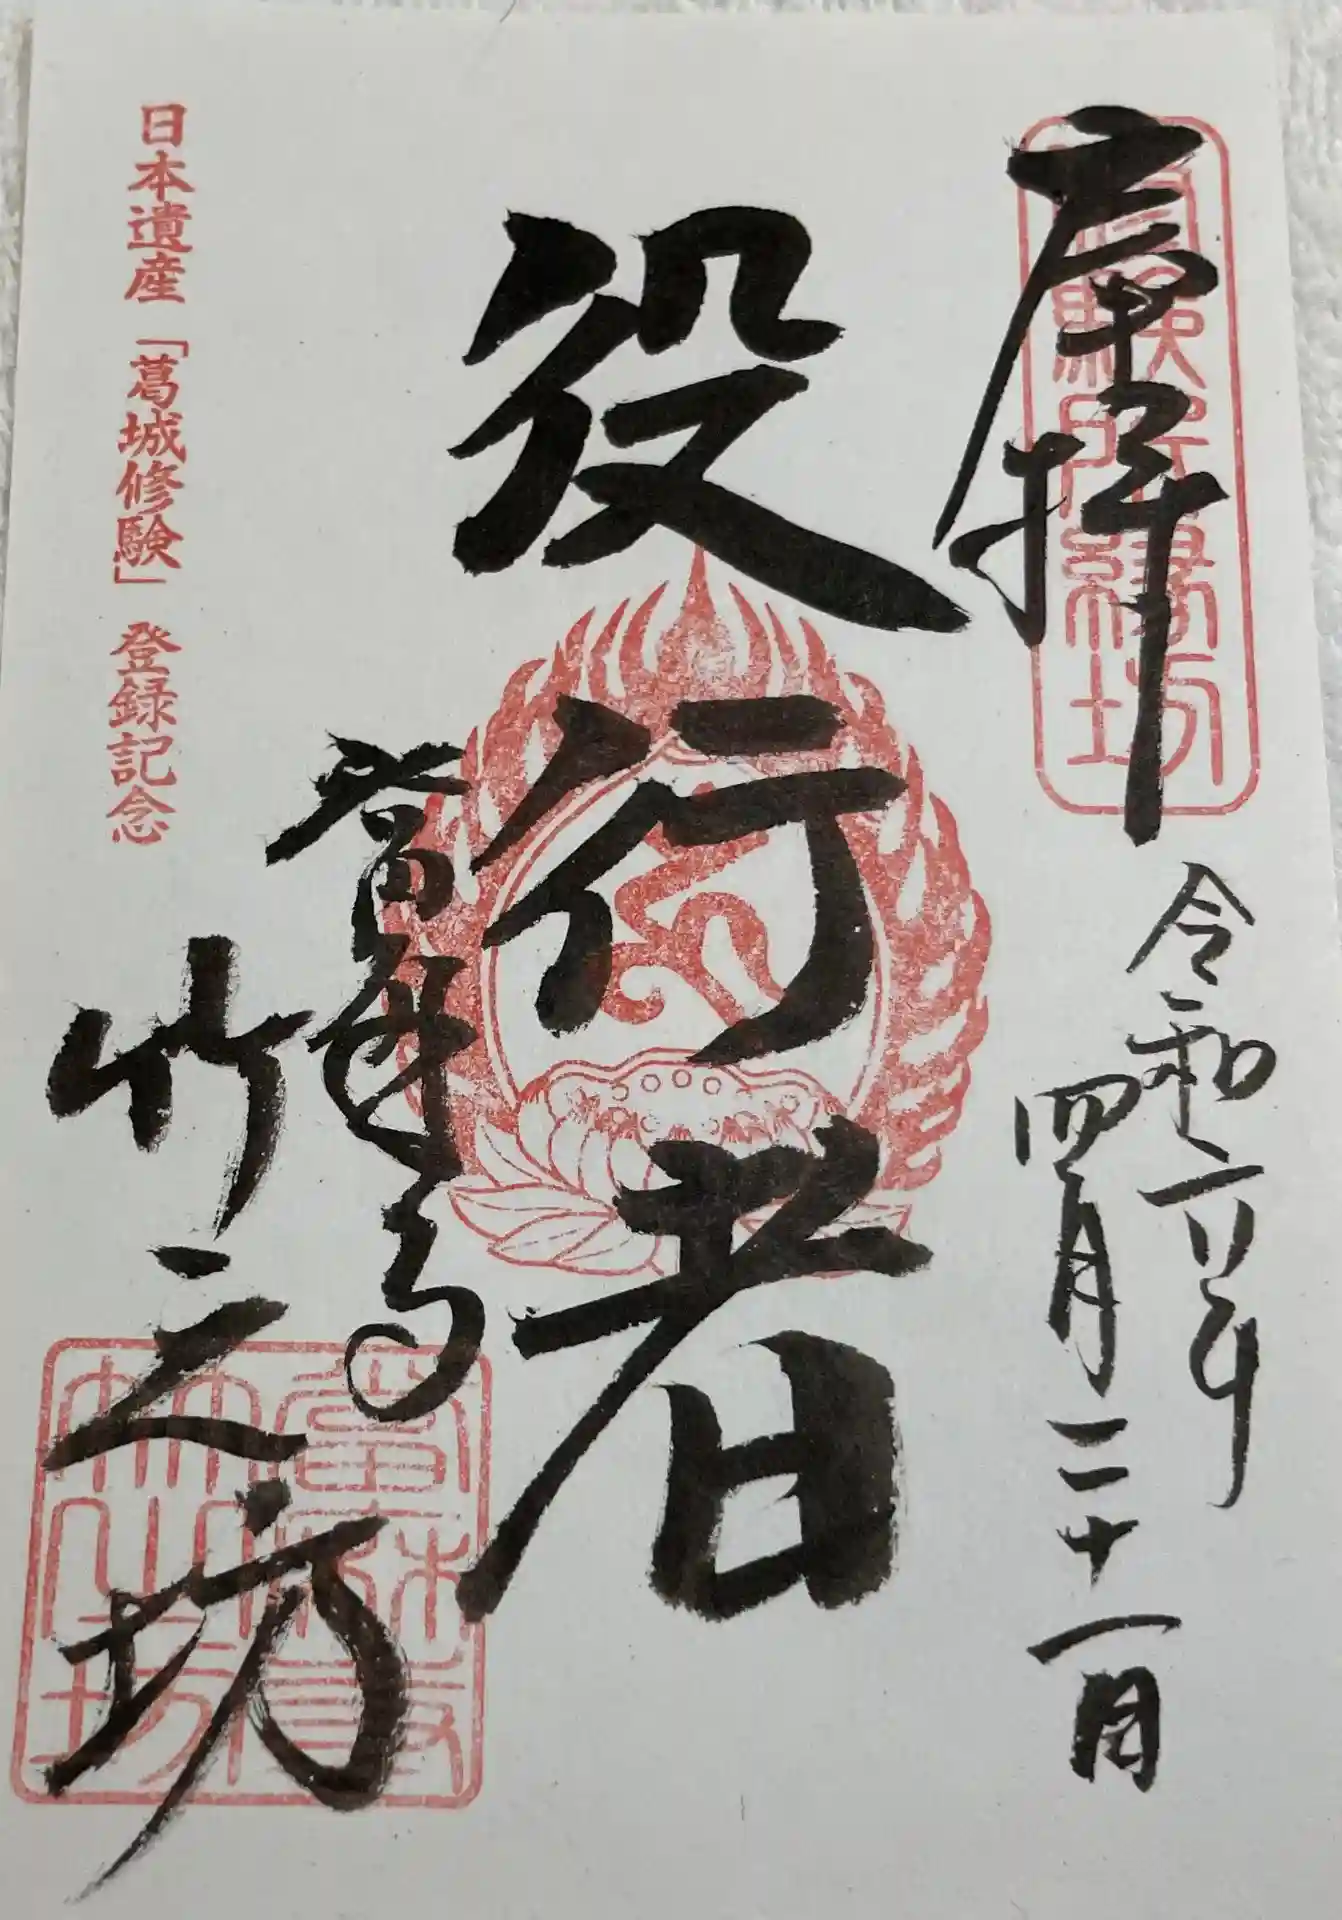 奉拝
令和六年
四月二十一日
役行者
當麻寺
竹之坊
日本遺産「葛城修験」登録記念